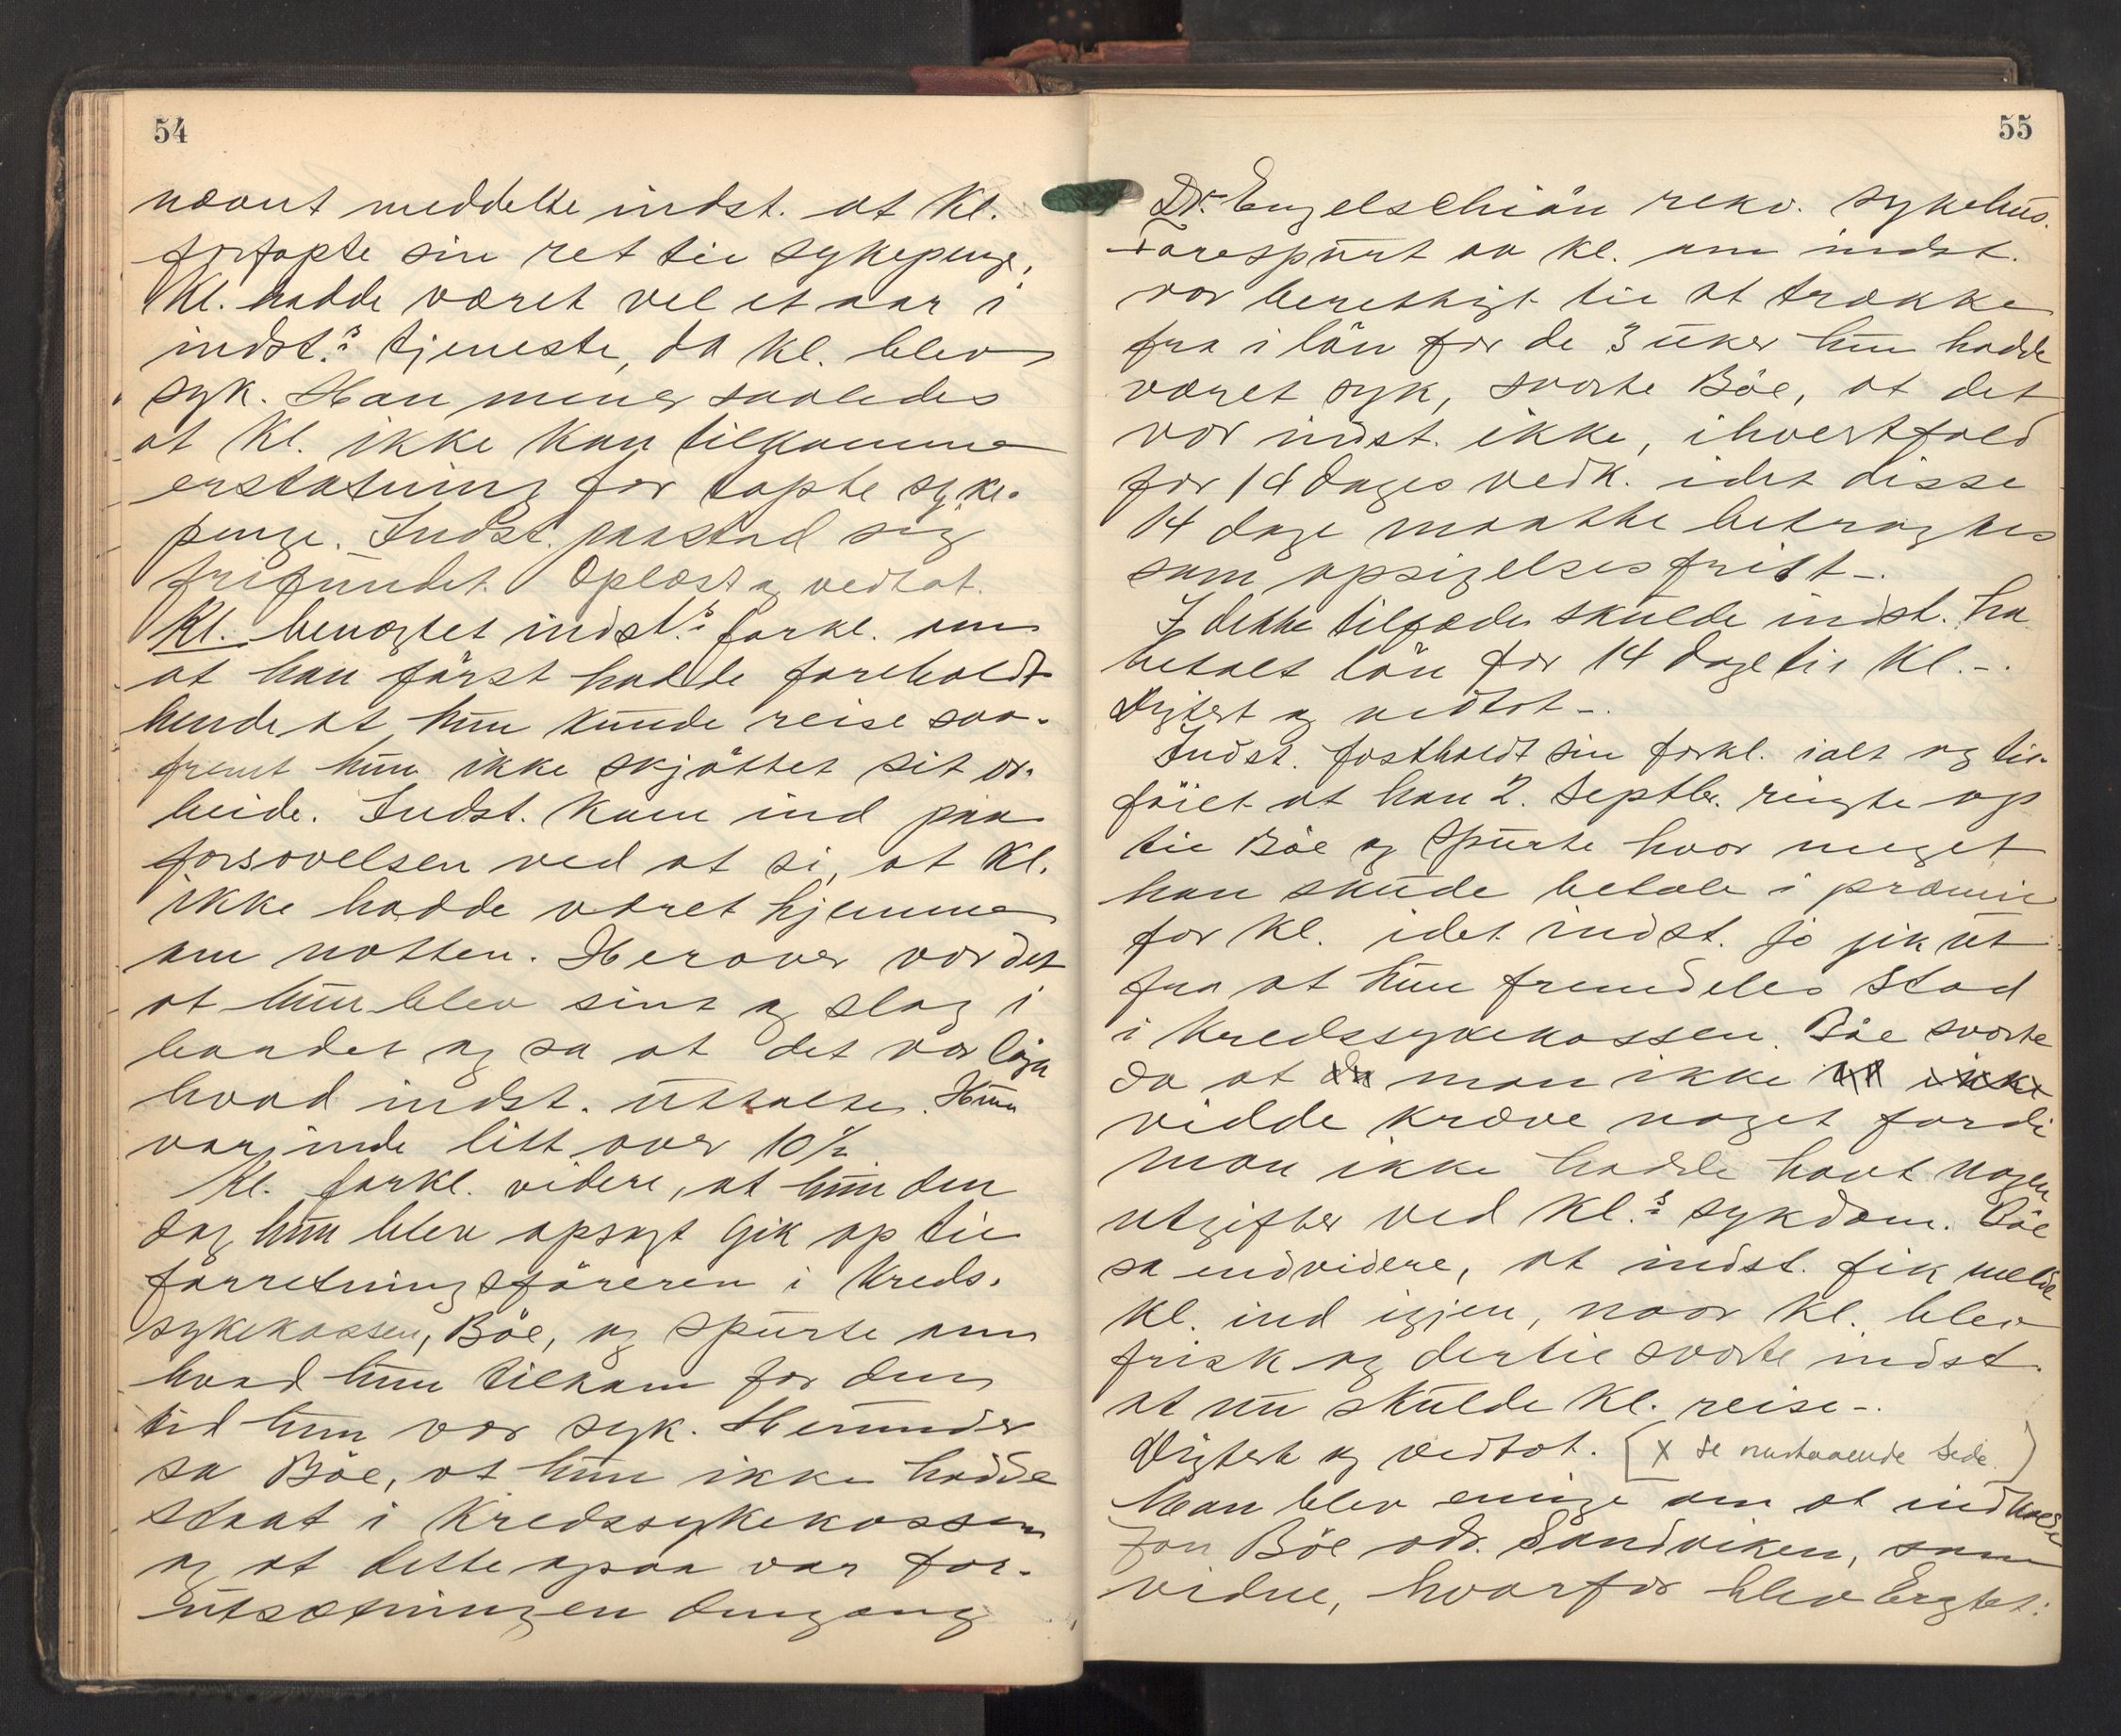 54
nævnt meddelte indst. at Kl.
fortapte sin ret til sykepenge,
Kl. hadde været vel et aar i
indst.s tjeneste, da Kl. blev
syk. Han mener saaledes
at Kl. ikke kan tilkomme
erstatning for tapte syke-
penge. Indst. paastod sig
frifundet. Oplæst og vedtat.
Kl. benægtet indst.s forkl. om
at han først hadde foreholdt
hende at hun kunde reise saa-
fremt hun ikke skjøttet sit ar-
beide. Indst. kom ind paa
forsovelsen ved at si, at Kl.
ikke hadde været hjemme
om natten. Herover var det
at hun blev sint og slog i
bordet og sa at det var løgn
hvad indst. uttalte. Hun
var inde litt over 10½
Kl. forkl. videre, at hun den
dag hun blev opsagt gik op til
forretningsføreren i Kreds-
sykekassen, Bøe, og spurte om
hvad hun tilkom for den
tid hun var syk. Herunder
sa Bøe, at hun ikke hadde
staat i Kredssykekassen
og at dette ogsaa var for-
utsætningen dengang
55
Dr. Engelschiøn rekv. sykehus.
Forespurt av Kl. om indst.
var berettiget til at trække
fra i løn for de 3 uker hun hadde
været syk, svarte Bøe, at det
var indst. ikke, ihvertfald
for 14 dages vedk. idet disse
14 dage maatte betragtes
som opsigelsesfrist-.
I dette tilfælde skulde indst. ha
betalt løn for 14 dage til Kl.-.
Dictert og vedtat-.
Indst. fastholdt sin forkl. ialt og til-
føiet at han 2. Septbr. ringte op
til Bøe og spurte hvor meget
han skulde betale i præmie
for Kl. idet indst. jo gik ut
fra at hun fremdeles stod
i Kredssykekassen. Bøe svarte
da at man ikke
vilde kræve noget fordi
man ikke hadde havt nogen
utgifter ved Kl.s sykdom. Bøe
sa endvidere, at indst. fik melde
Kl. ind igjen, naar Kl. blev
frisk og dertil svarte indst.
at nu skulde Kl. reise-.
Dictert og vedtat. [x se nestaaende side.)
Man blev enige om at indkalde
Bøe adr. Sandviken, som
vidne, hvorfor blev bergtet: